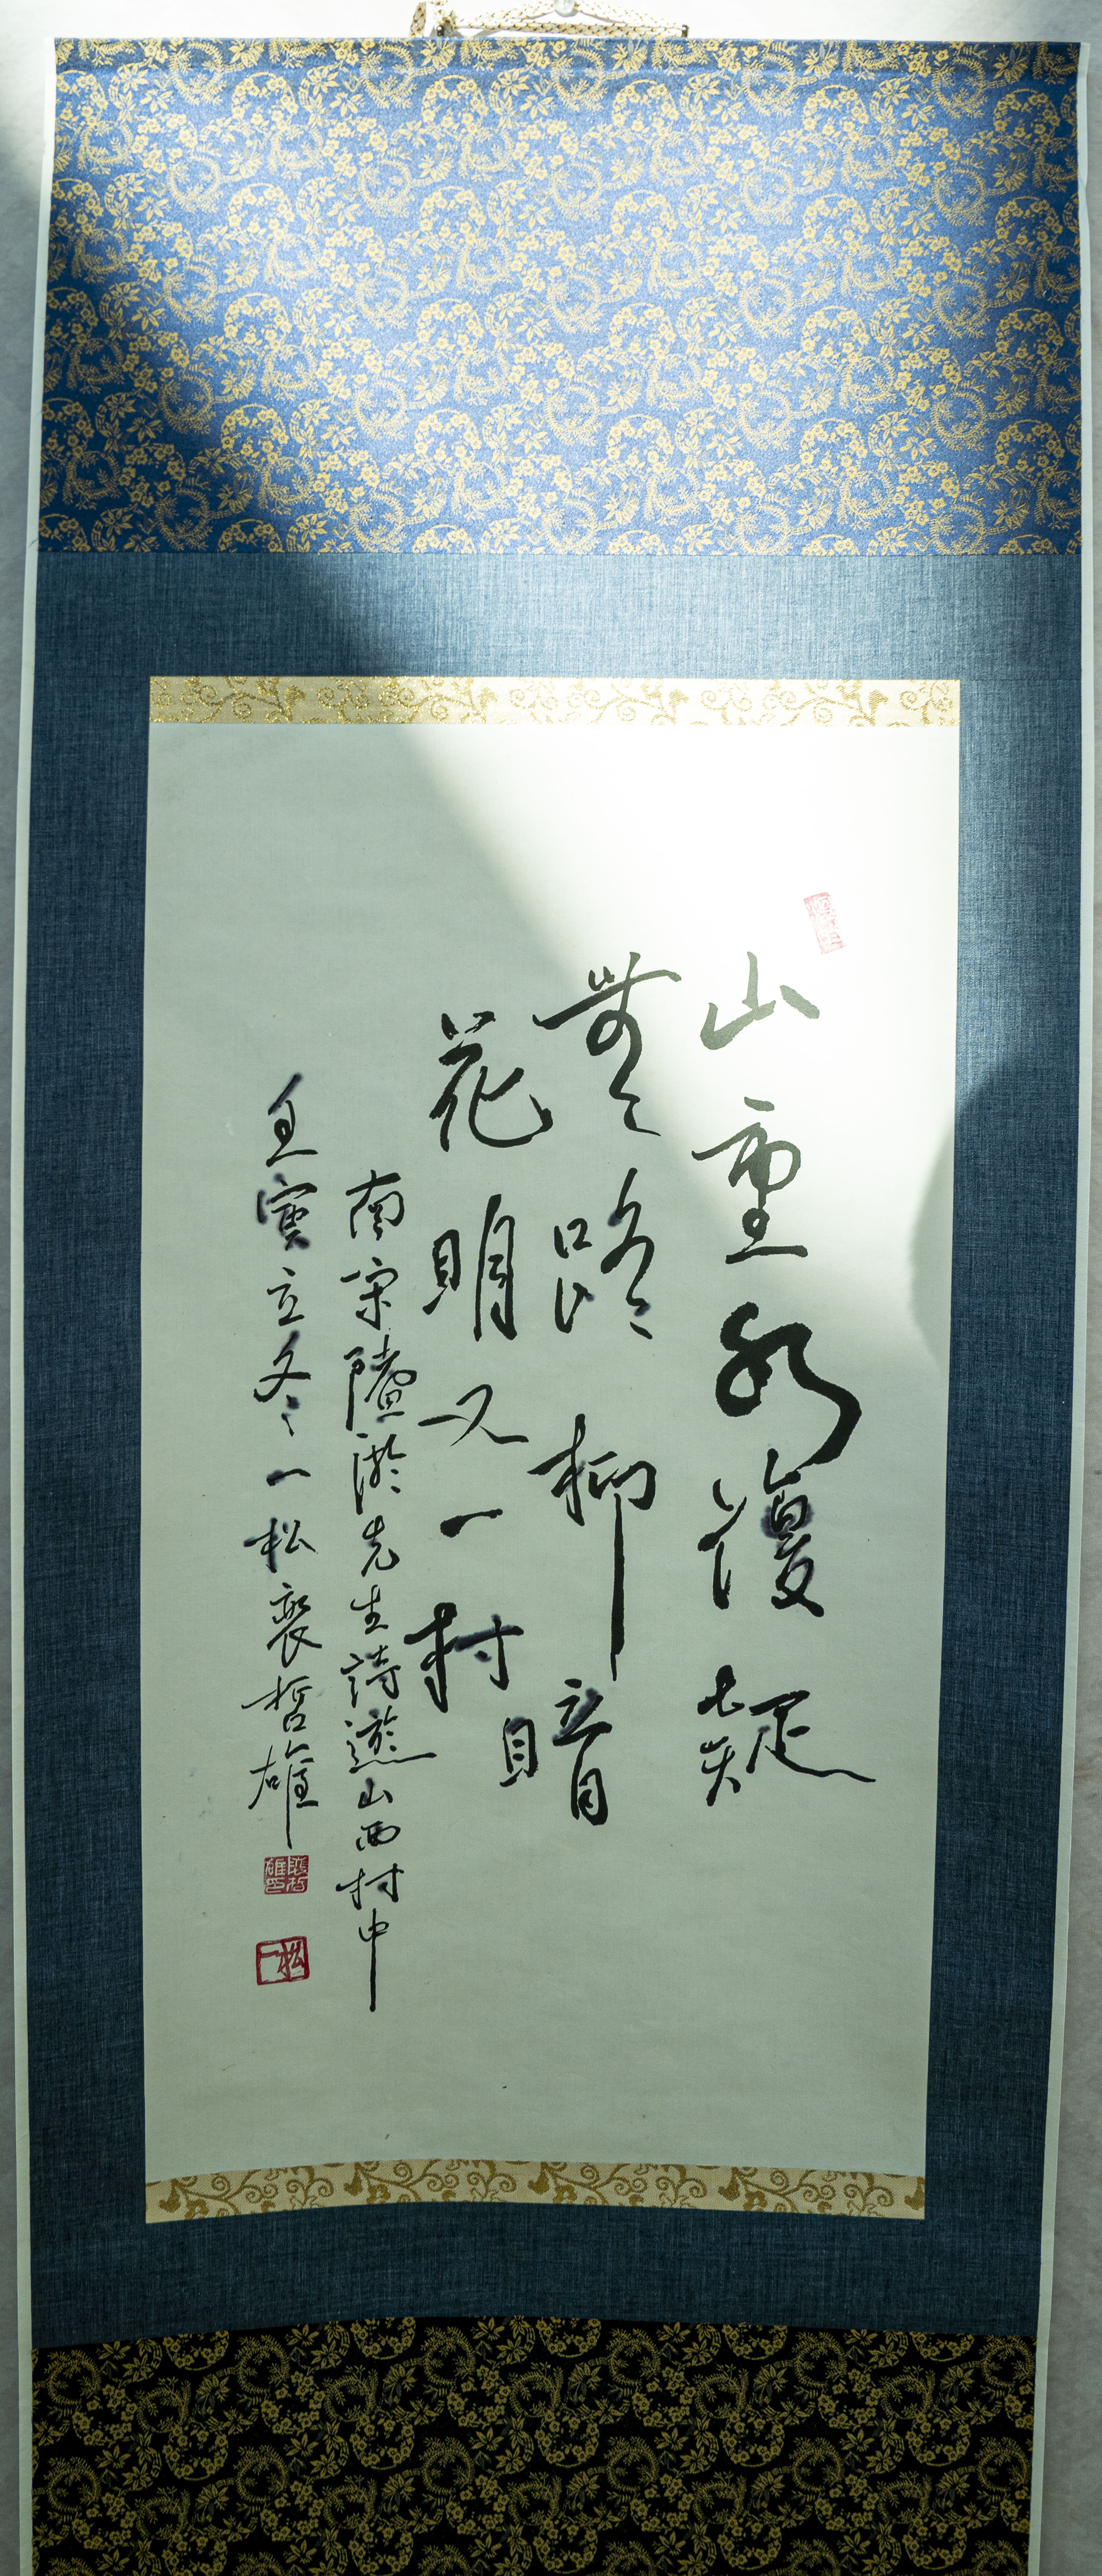 山重水複疑
無路柳暗
花明又一村
南宋陸游先生詩遊山西村中
壬寅立冬一松裵哲雄
裵哲雄印
一松